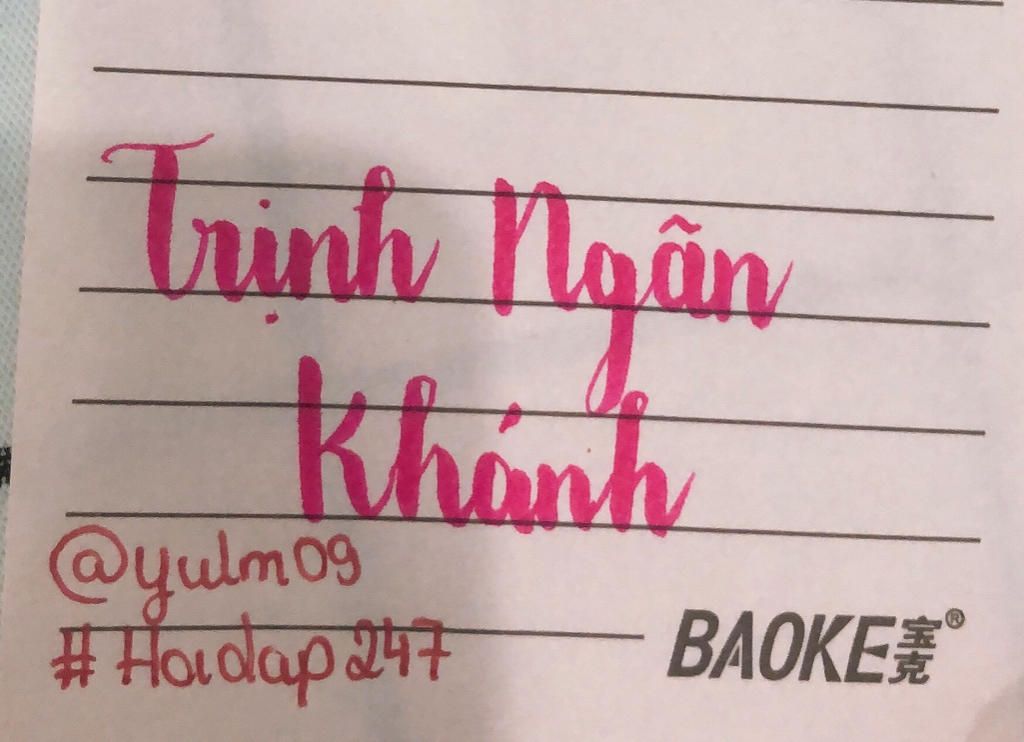 Trịnh Ngân
Khánh
@yulm09
#Hoidap247
BAOKE宝克®